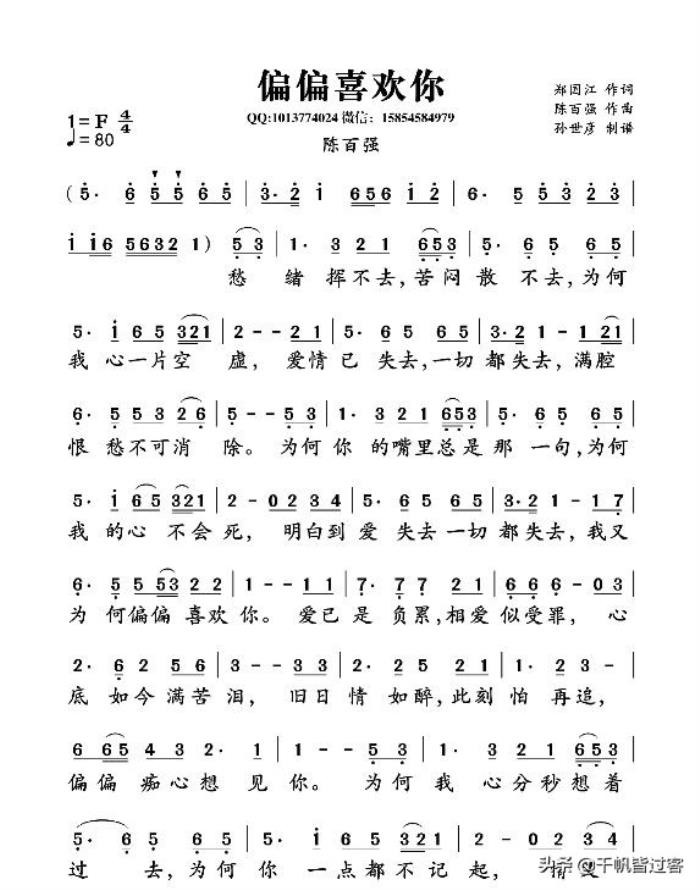 偏偏喜欢你
QQ:1013774024 微信：15854584979
陈百强
郑国江 作词
陈百强 作曲
孙世彦 制谱
1=F 4/4
♩=80
( 5· 6 5 5 6 5 | 3· 2 1 6 5 6 1 2 | 6· 5 5 3 2 3 |
1 1 6 5 6 3 2 1 ) 5 3 | 1· 3 2 1 6 5 3 | 5· 6 5 6 5 |
愁 绪 挥不去,苦闷 散 不去,为何
5· 1 6 5 3 2 1 | 2 - - 2 1 | 5· 6 5 6 5 | 3· 2 1 - 1 2 1 |
我 心一片空 虚, 爱情已 失去,一切 都失去,满腔
6· 5 5 3 2 6 | 5 - - 5 3 | 1· 3 2 1 6 5 3 | 5· 6 5 6 5 |
恨 愁不可消 除。为何你 的嘴里总是那 一句,为何
5· 1 6 5 3 2 1 | 2 - 0 2 3 4 | 5· 6 5 6 5 | 3· 2 1 - 1 7 |
我 的心 不会死, 明白到爱 失去一切都失去,我又
6· 5 5 5 3 2 2 | 1 - - 1 1 | 7· 7 7 2 1 | 6 6 6 - 0 3 |
为 何偏偏 喜欢你。爱已是 负累,相爱似受罪, 心
2· 6 2 5 6 | 3 - - 3 3 | 2· 2 5 2 1 | 1· 5 5 3 |
底 如今满苦泪, 旧日情 如醉,此刻怕 再追,
6 6 5 4 3 2· 1 | 1 - - 5 3 | 1· 3 2 1 6 5 3 |
偏偏 痴心想 见你。 为何我 心分秒想着
5· 6 5 6 5 | 5· 1 6 5 3 2 1 | 2 - 0 2 3 4 |
过 去,为何你 一点都不记起,
头条 @千帆皆过客